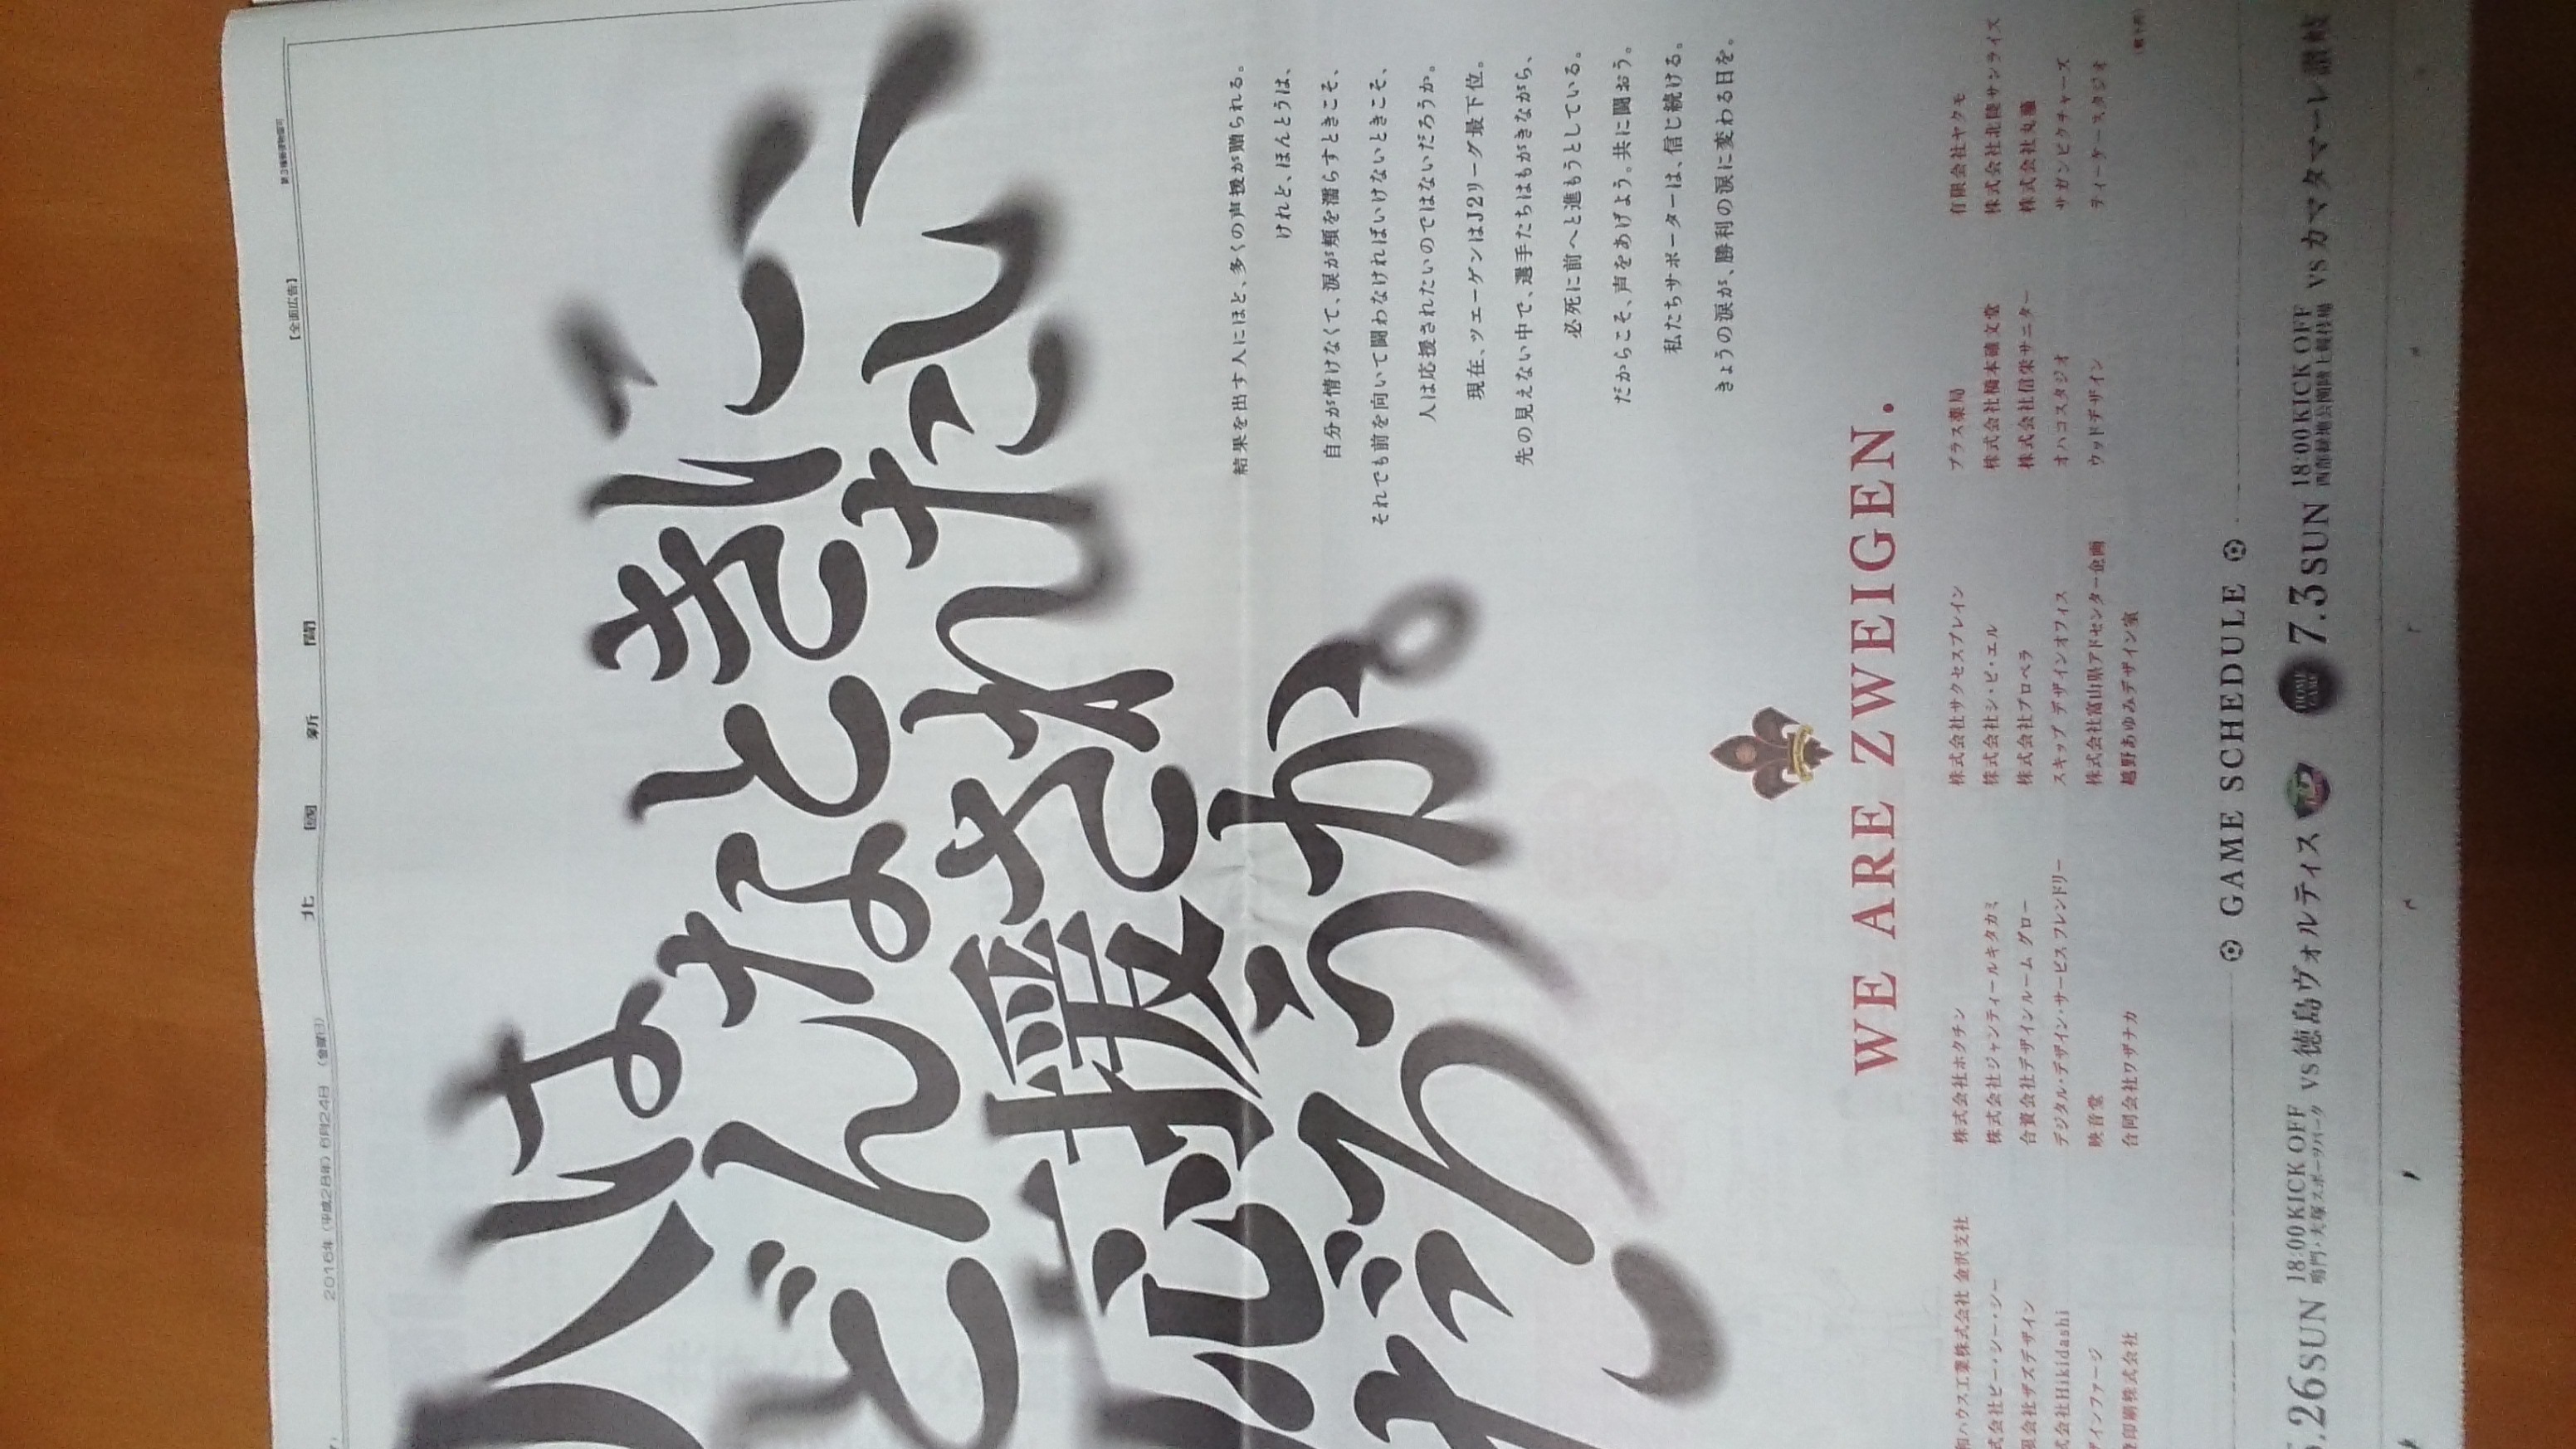 2016年（平成28年）6月24日（金曜日）
北國新聞
【全面広告】
第3種郵便物認可
人は
どんなときに、
応援されたい
だろうか。
結果を出す人にほど、多くの声援が贈られる。
けれど、ほんとうは、
自分が情けなくて、涙が頬を濡らすときこそ、
それでも前を向いて闘わなければいけないときこそ、
人は応援されたいのではないだろうか。
現在、ツエーゲンはJ2リーグ最下位。
先の見えない中で、選手たちはもがきながら、
必死に前へと進もうとしている。
だからこそ、声をあげよう。共に闘おう。
私たちサポーターは、信じ続ける。
きょうの涙が、勝利の涙に変わる日を。
WE ARE ZWEIGEN.
和ハウス工業株式会社 金沢支社 株式会社ホクチン 株式会社サクセスブレイン プラス薬局 有限会社ヤクモ
式会社ピー・シー・シー 株式会社ジャンティールキタカミ 株式会社シ・ピ・エル 株式会社橋本確文堂 株式会社北陸サンライズ
限会社ザズデザイン 合資会社デザインルーム グロー 株式会社プロペラ 株式会社信栄サニター 株式会社丸繊
式会社Hikidashi デジタル・デザイン・サービスフレンドリー スキップ デザインオフィス オハコスタジオ サガンピクチャーズ
インファージ 映音堂 株式会社富山県アドセンター企画 ウッドデザイン ティーケースタジオ
印刷株式会社 合同会社ワザナカ 越野あゆみデザイン室
（順不同）
GAME SCHEDULE
.26SUN 18:00KICK OFF 鳴門・大塚スポーツパーク VS徳島ヴォルティス
HOME GAME 7.3SUN 18:00KICK OFF 西部緑地公園陸上競技場 VSカマタマーレ讃岐